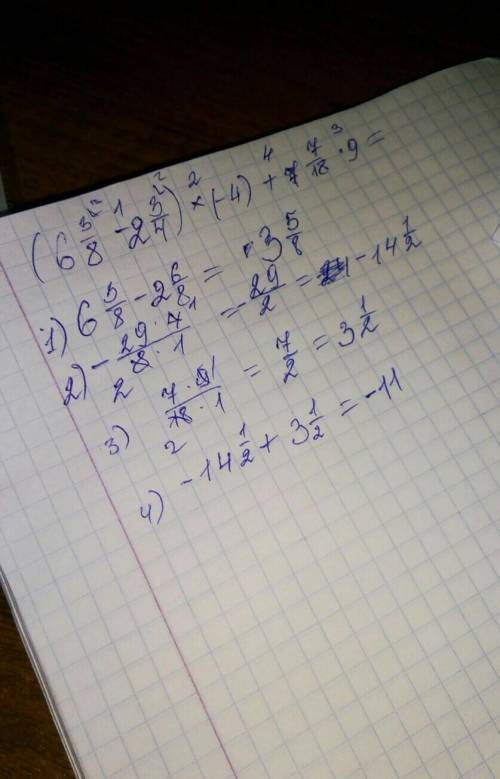 (6 3/8 - 2 3/4) × (-4) + 7/18 · 9 =
1) 6 5/8 - 2 6/8 = 3 5/8
2) - 29·4/8·1 = 29/2 = -14 1/2
3) 7·9/18·1 = 7/2 = 3 1/2
4) -14 1/2 + 3 1/2 = -11